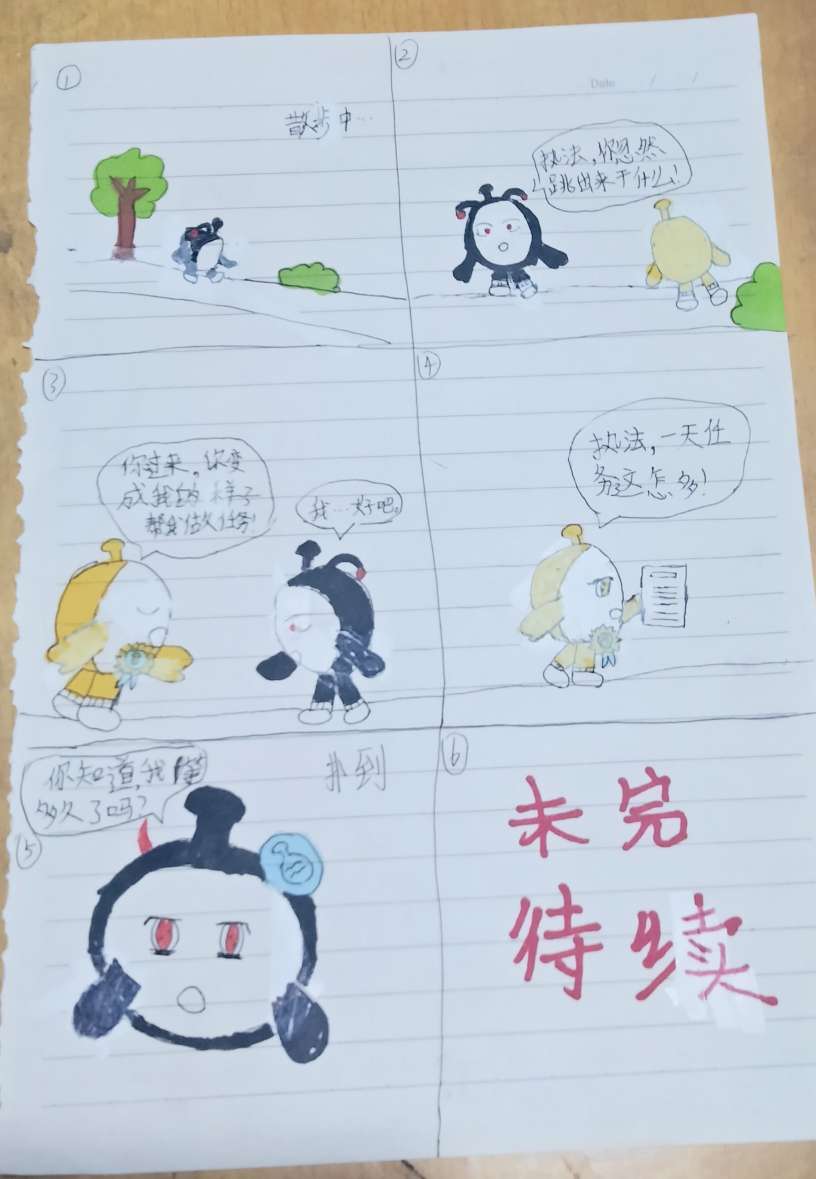 ①
散步中…
②
Date / /
执法,你忽然
跳出来干什么!
③
你过来,你变
成我的样子
帮我做任务!
我…好吧。
④
执法,一天任
务这怎多!
⑤
你知道,我
多久了吗?
扑到
⑥
未完
待续